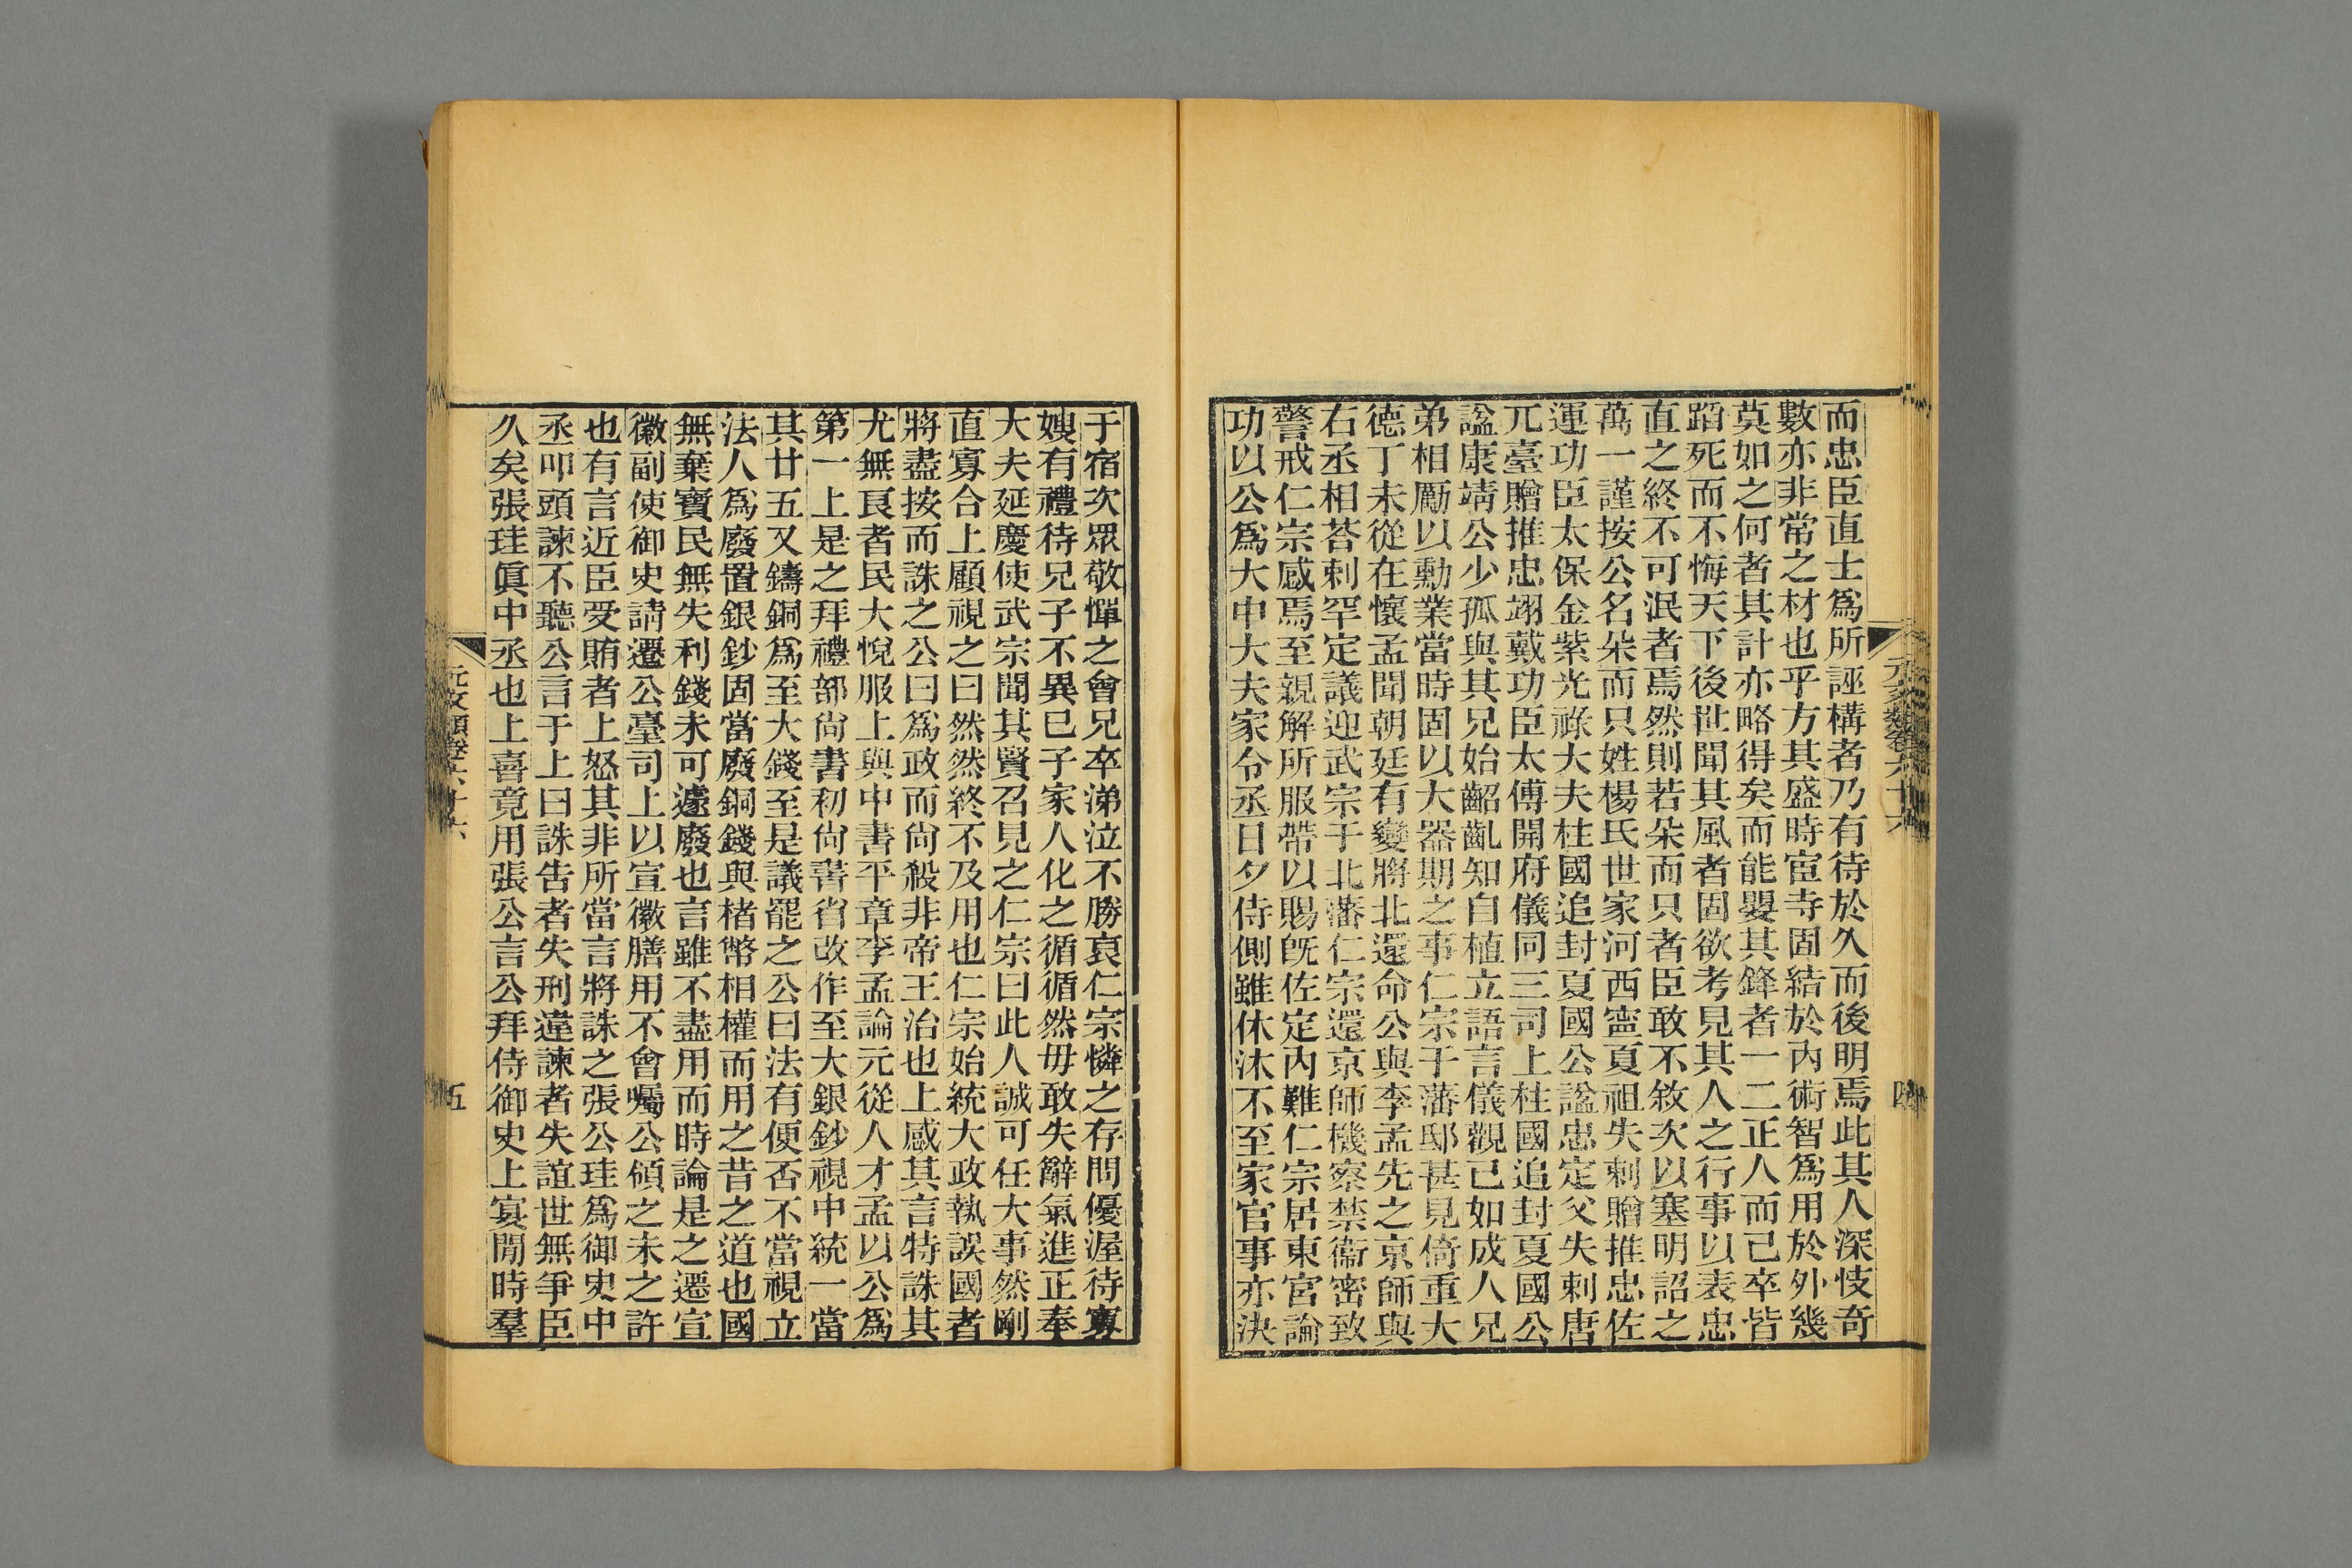 而忠臣直士爲所誣構者乃有待於久而後明焉此其人深忮奇
數亦非常之材也乎方其盛時宦寺固結於內術智爲用於外幾
莫如之何者其計亦略得矣而能嬰其鋒者一二正人而己卒皆
蹈死而不悔天下後世聞其風者固欲考見其人之行事以表忠
直之終不可泯者焉然則若朵而只者臣敢不敘次以塞明詔之
萬一謹按公名朵而只姓楊氏世家河西寧夏祖失剌贈推忠佐
運功臣太保金紫光祿大夫柱國追封夏國公諡忠定父失剌唐
兀臺贈推忠翊戴功臣太傅開府儀同三司上柱國追封夏國公
諡康靖公少孤與其兄始齠齔知自植立語言儀觀已如成人兄
弟相勵以勳業當時固以大器期之事仁宗于藩邸甚見倚重大
德丁未從在懷孟聞朝廷有變將北還命公與李孟先之京師與
右丞相荅剌罕定議迎武宗于北藩仁宗還京師機察禁衞密致
警戒仁宗感焉至親解所服帶以賜旣佐定內難仁宗居東宮論
功以公爲大中大夫家令丞日夕侍側雖休沐不至家官事亦決
元文類卷六十六
四
于宿次眾敬憚之會兄卒涕泣不勝哀仁宗憐之存問優渥待寡
嫂有禮待兄子不異已子家人化之循循然毋敢失辭氣進正奉
大夫延慶使武宗聞其賢召見之仁宗曰此人誠可任大事然剛
直寡合上顧視之曰然然終不及用也仁宗始統大政執誤國者
將盡按而誅之公曰爲政而尙殺非帝王治也上感其言特誅其
尤無良者民大悅服上與中書平章李孟論元從人才孟以公爲
第一上是之拜禮部尙書初尙書省改作至大銀鈔視中統一當
其廿五又鑄銅爲至大錢至是議罷之公曰法有便否不當視立
法人爲廢置銀鈔固當廢銅錢與楮幣相權而用之昔之道也國
無棄寶民無失利錢未可遽廢也言雖不盡用而時論是之遷宣
徽副使御史請遷公臺司上以宣徽膳用不會囑公領之未之許
也有言近臣受賄者上怒其非所當言將誅之張公珪爲御史中
丞叩頭諫不聽公言于上曰誅告者失刑違諫者失誼世無爭臣
久矣張珪眞中丞也上喜竟用張公言公拜侍御史上宴閒時羣
元文類卷六十六
五